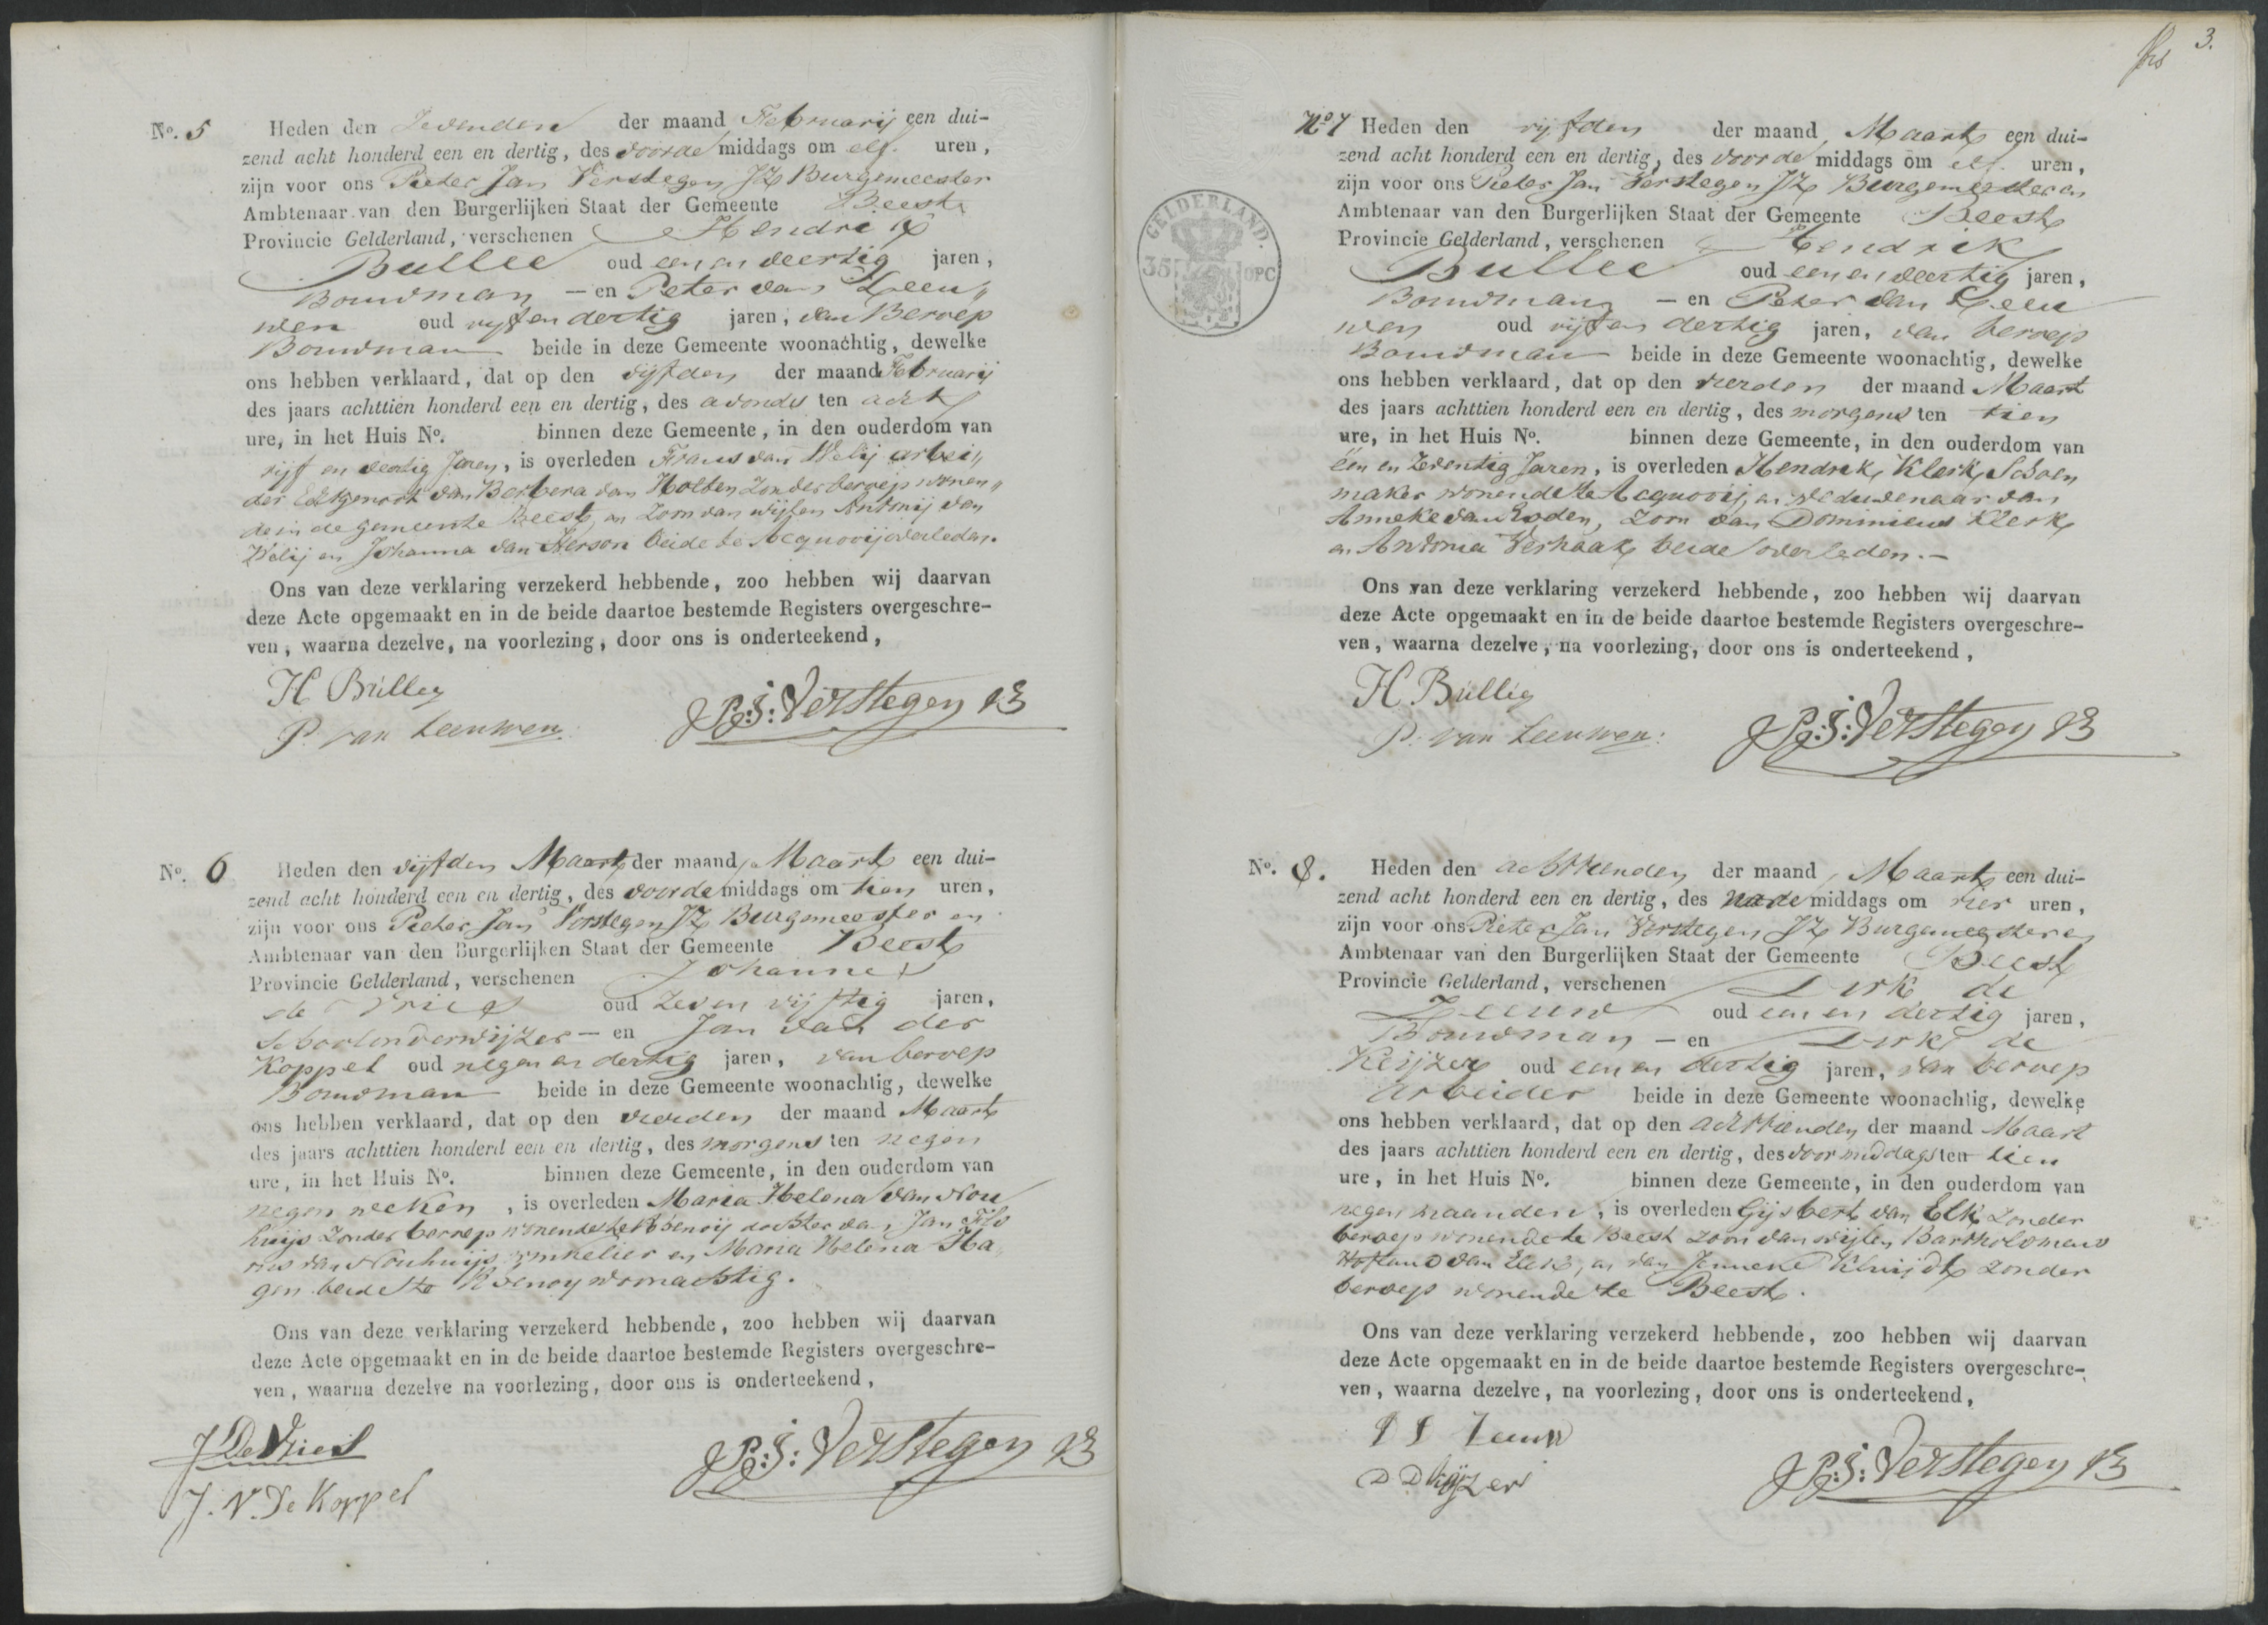 No. 5 Heden den Zevenden der maand Februarij een dui-
zend acht honderd een en dertig, des voorde middags om elf uren,
zijn voor ons Pieter Jan Verstegen JZ Burgemeester
Ambtenaar van den Burgerlijken Staat der Gemeente Beest
Provincie Gelderland, verschenen Hendrik
Bullee oud een en veertig jaren,
Bouwman — en Peter van Leeu„
wen oud vijf en dertig jaren, van Beroep
Bouwman beide in deze Gemeente woonachtig, dewelke
ons hebben verklaard, dat op den vijfden der maand Februarij
des jaars achttien honderd een en dertig, des avonds ten acht
ure, in het Huis No. binnen deze Gemeente, in den ouderdom van
vijf en veertig Jaren, is overleden Frans van Welij arbei„
der Echtgenoot van Berbera van Holten Zonder beroep wonen„
de in de gemeente Beest, en Zoon van wijlen Antonij van
Welij en Johanna van Herson beide te Acquoij overleden.
Ons van deze verklaring verzekerd hebbende, zoo hebben wij daarvan
deze Acte opgemaakt en in de beide daartoe bestemde Registers overgeschre-
ven, waarna dezelve, na voorlezing, door ons is onderteekend,
H Bulleg
P. van Leeuwen
P:J: Verstegen JZ
No. 6 Heden den vijfden Maart der maand Maart een dui-
zend acht honderd een en dertig, des voorde middags om tien uren,
zijn voor ons Pieter Jan Verstegen JZ Burgemeester en
Ambtenaar van den Burgerlijken Staat der Gemeente Beest
Provincie Gelderland, verschenen Johannes
de Vries oud Zeven vijftig jaren,
Schoolonderwijzer — en Jan van der
Koppel oud negen en dertig jaren, van beroep
Bouwman beide in deze Gemeente woonachtig, dewelke
ons hebben verklaard, dat op den vierden der maand Maart
des jaars achttien honderd een en dertig, des morgens ten negen
ure, in het Huis No. binnen deze Gemeente, in den ouderdom van
negen weeken, is overleden Maria Helena van Nou
huijs Zonder beroep wonende te Rhenoij dochter van Jan Flo
ris van Nouhuijs winkelier en Maria Helena Ha„
gen beide te Rhenoy woonachtig.
Ons van deze verklaring verzekerd hebbende, zoo hebben wij daarvan
deze Acte opgemaakt en in de beide daartoe bestemde Registers overgeschre-
ven, waarna dezelve na voorlezing, door ons is onderteekend,
J De Vries
J. V. De Koppel
P:J: Verstegen JZ
3.
GELDERLAND.
35 OPC
No 7 Heden den vijfden der maand Maart een dui-
zend acht honderd een en dertig, des voorde middags om elf uren,
zijn voor ons Pieter Jan Verstegen JZ Burgemeester en
Ambtenaar van den Burgerlijken Staat der Gemeente Beest
Provincie Gelderland, verschenen Hendrik
Bullee oud een en veertig jaren,
Bouwman — en Peter van Leeu
wen oud vijf en dertig jaren, van beroep
Bouwman beide in deze Gemeente woonachtig, dewelke
ons hebben verklaard, dat op den vierden der maand Maart
des jaars achttien honderd een en dertig, des morgens ten tien
ure, in het Huis No. binnen deze Gemeente, in den ouderdom van
één en Zeventig Jaren, is overleden Hendrik Klerk, Schoen
maker wonende te Acquoij, en Weduwenaar van
Anneke van Roden, Zoon van Dominicus Klerk
en Antonia Verhaak beide overleden. —
Ons van deze verklaring verzekerd hebbende, zoo hebben wij daarvan
deze Acte opgemaakt en in de beide daartoe bestemde Registers overgeschre-
ven, waarna dezelve, na voorlezing, door ons is onderteekend,
H Bulleg
P. van Leeuwen:
P:J: Verstegen JZ
No. 8. Heden den achttienden der maand Maart een dui-
zend acht honderd een en dertig, des nade middags om vier uren,
zijn voor ons Pieter Jan Verstegen JZ Burgemeester en
Ambtenaar van den Burgerlijken Staat der Gemeente Beest
Provincie Gelderland, verschenen Dirk de
Zeeuw oud een en dertig jaren,
Bouwman — en Dirk de
Keijzer oud een en dertig jaren, van beroep
Arbeider beide in deze Gemeente woonachtig, dewelke
ons hebben verklaard, dat op den achttienden der maand Maart
des jaars achttien honderd een en dertig, des voormiddags ten tien
ure, in het Huis No. binnen deze Gemeente, in den ouderdom van
negen maanden, is overleden Gijsbert van Elk Zonder
beroep wonende te Beest zoon van wijlen Bartholomeus
van Elk, en van Jenneke Kluijdt Zonder
beroep wonende te Beest.
Ons van deze verklaring verzekerd hebbende, zoo hebben wij daarvan
deze Acte opgemaakt en in de beide daartoe bestemde Registers overgeschre-
ven, waarna dezelve, na voorlezing, door ons is onderteekend,
D D Zeeuw
D D Kijzer
P:J: Verstegen JZ